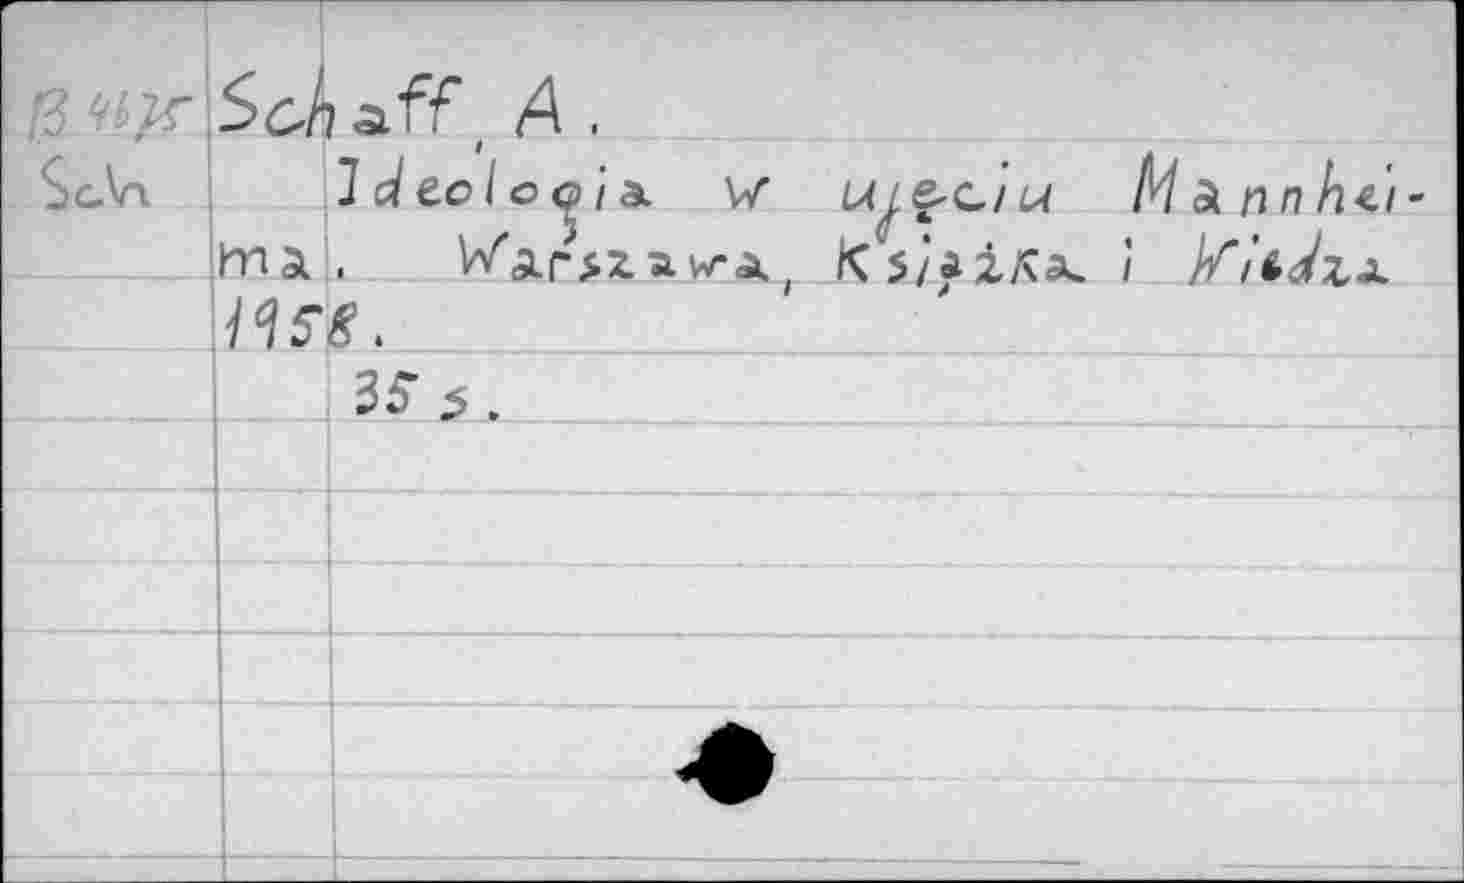 Schaff, A.
Sch Ideologia w ujęciu Mannhei-
ma. Warszawa, Książka i Wiedza
1958.
35 s.